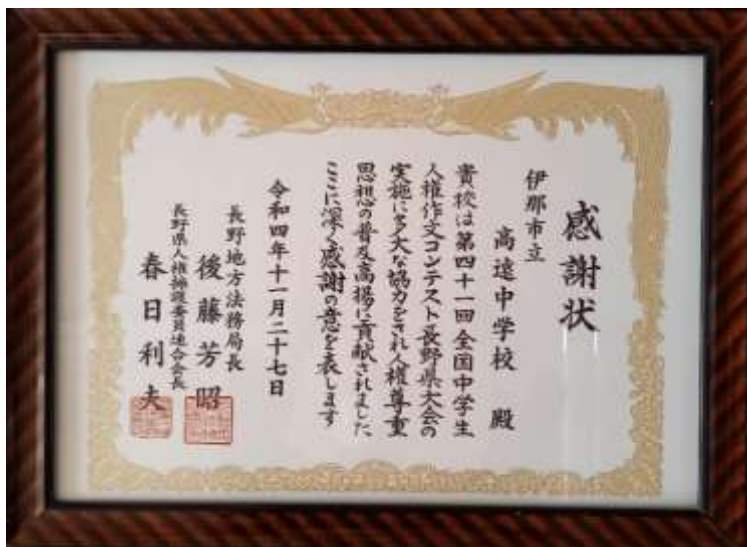 感謝状
伊那市立
高遠中学校 殿
貴校は第四十一回全国中学生
人権作文コンテスト長野県大会の
実施に多大な協力をされ人権尊重
思想の普及高揚に貢献されました
ここに深く感謝の意を表します
令和四年十一月二十七日
長野地方法務局長
後藤芳昭
長野県人権擁護委員連合会長
春日利夫